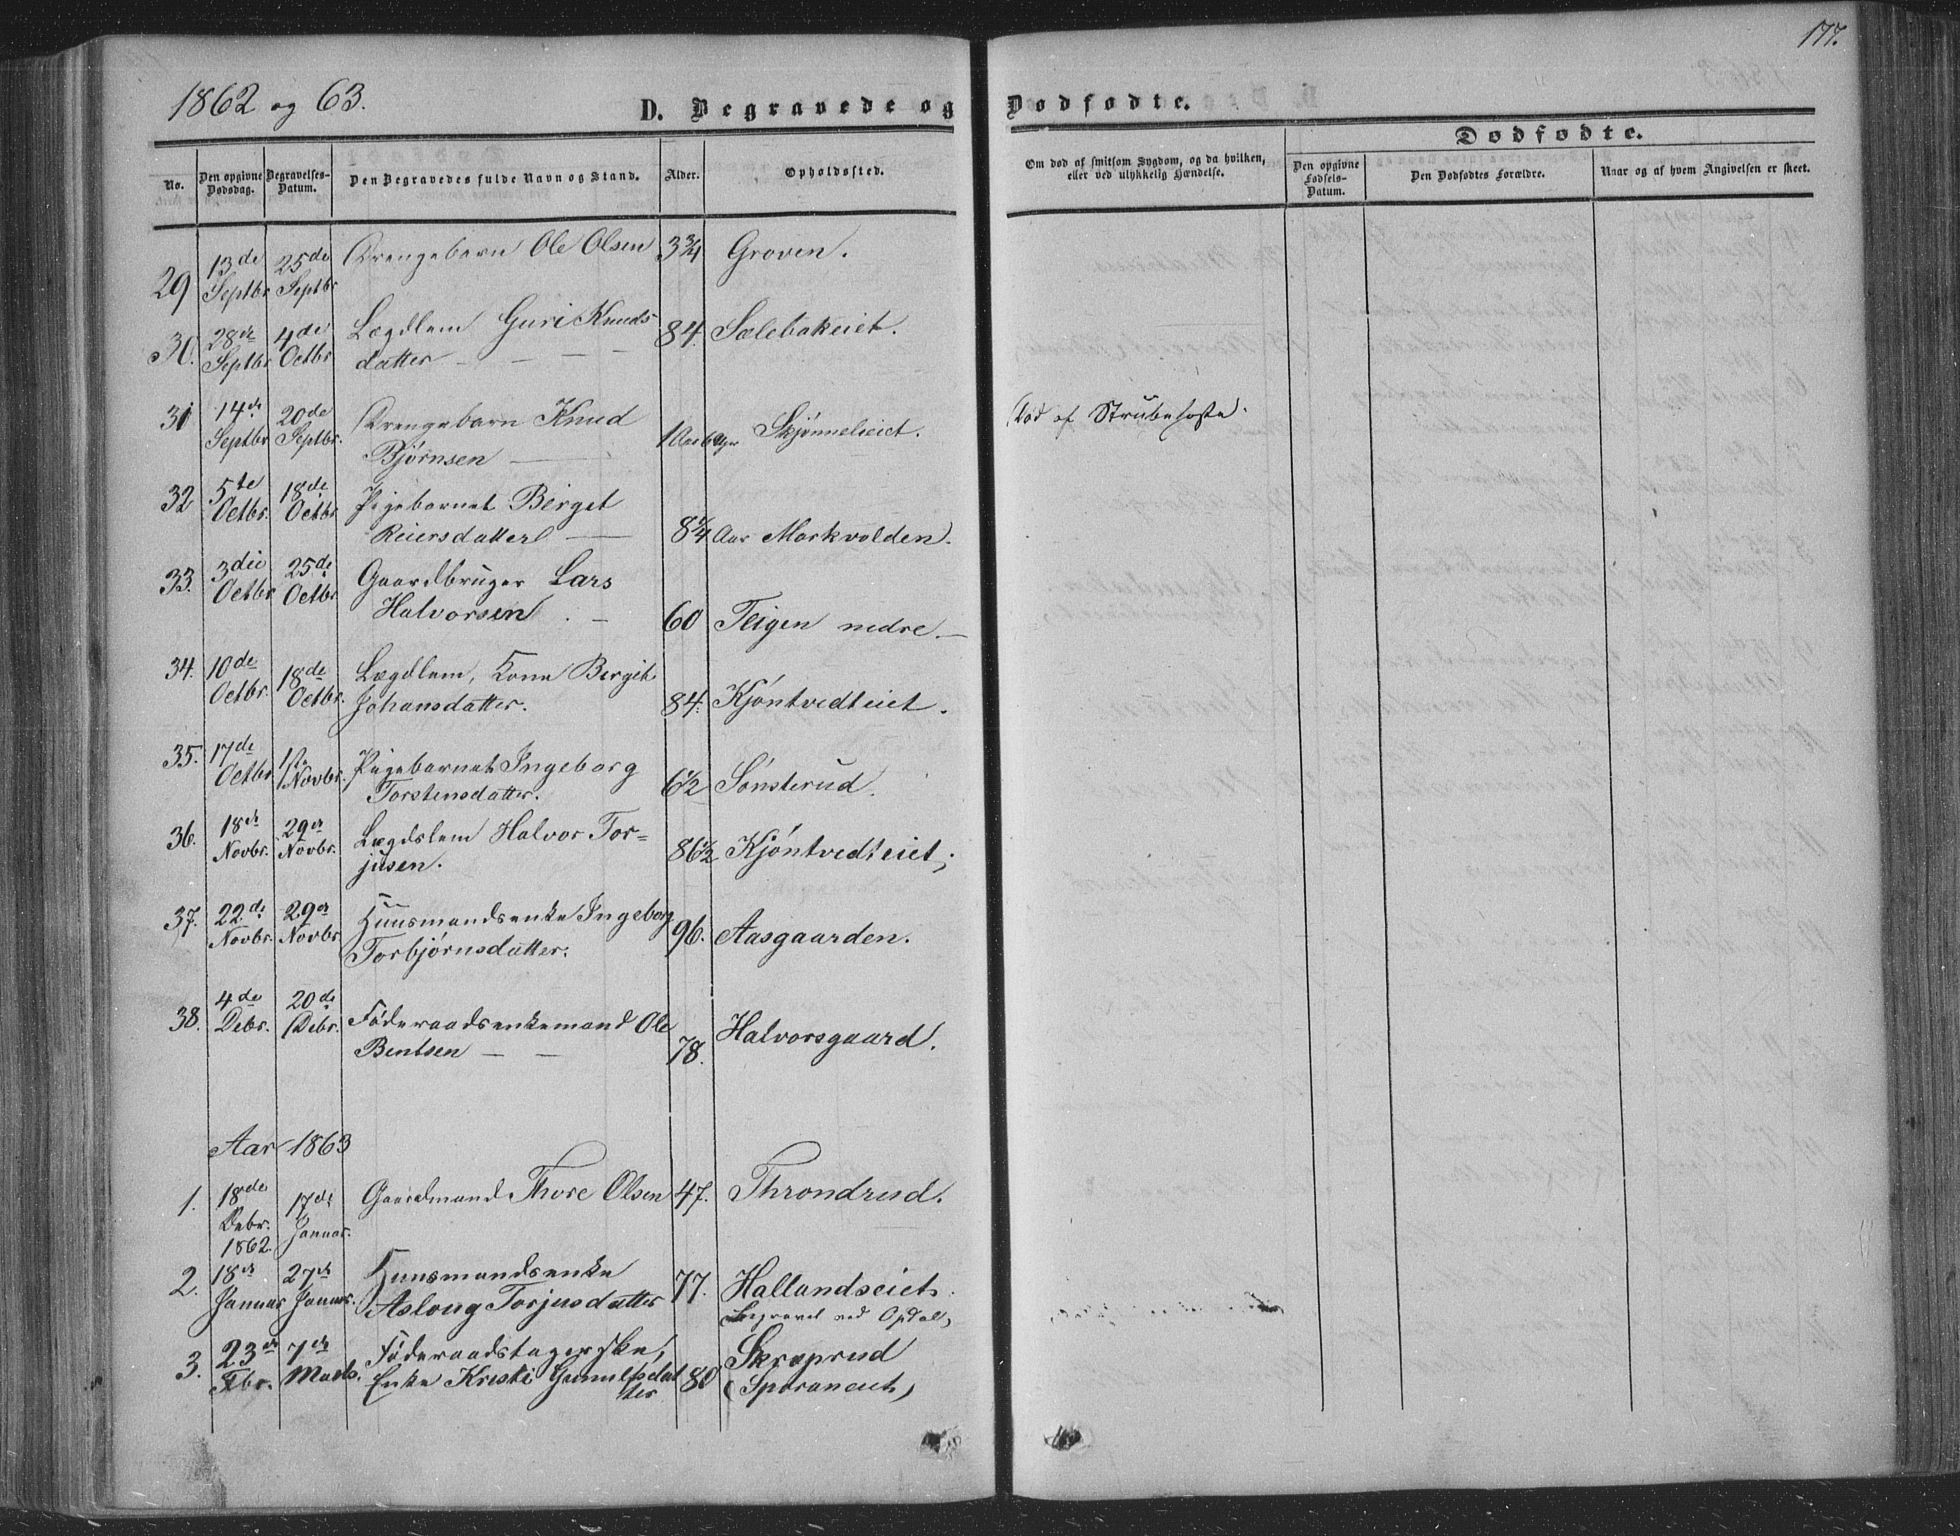 177.
1862 og 63.
D. Begravede og Dødfødte.
Dødfødte.
No.
Den opgivne Dødsdag.
Begravelses-Datum.
Den Begravedes fulde Navn og Stand.
Alder.
Opholdssted.
Om død af smitsom Sygdom, og da hvilken, eller ved ulykkelig Hændelse.
Den opgivne Fødsels-Datum.
Den Dødfødtes Forældre.
Naar og af hvem Angivelsen er skeet.
29 13de Septbr 25de Septbr Drengebarn Ole Olsen 3 3/4 Groven.
30. 28de Septbr 4de Octbr Lægdlem Guri Knuds-
datter — 84. Sælebakeiet.
31 14de Septbr 20de Septbr. Drengebarn Knud
Bjørnsen — 1 Aar 6 Skjønnelseiet. Død af Strubehoste.
32 5te Octbr. 18de Octbr. Pigebarnet Birget
Reiersdatter — 8 1/4 Aar Markvolden.
33. 3die Octbr 25de Octbr. Gaardbruger Lars
Halvorsen — 60 Teigen nedre. —
34. 10de Octbr. 18de Octbr. Lægdlem, Kone Bergit
Johansdatter. 84. Kjøntvedteiet.
35. 17de Octbr 1ste Novbr. Pigebarnet Ingeborg
Torstensdatter. 6 1/2 Sønsterud.
36. 18de Novbr. 29de Novbr. Lægdslem Halvor Tor=
jusen. 86 1/2 Kjøntvedteiet;
37. 22de Novbr. 29de Novbr. Huusmandsenke Ingeborg
Torbjørnsdatter. 96. Aasgaarden.
38. 4de Debr. 20de Debr. Føderaadsenkemand Ole
Bentsen — — 78. Halvorsgaard.
Aar 1863
1. 18de Debr. 1862. 17de Januar. Gaardmand Thore Olsen 47. Throndrud.
2. 18de Januar 27de Januar. Huusmandsenke
Asloug Torjusdatter 77. Hallandseiet.
Begravet ved Opdal,
3. 23de Febr. 7de Marts. Føderaadstagerske,
Enke Kristi Gunulfsdat
ter 80 Skraprud
(Sporaneiet)